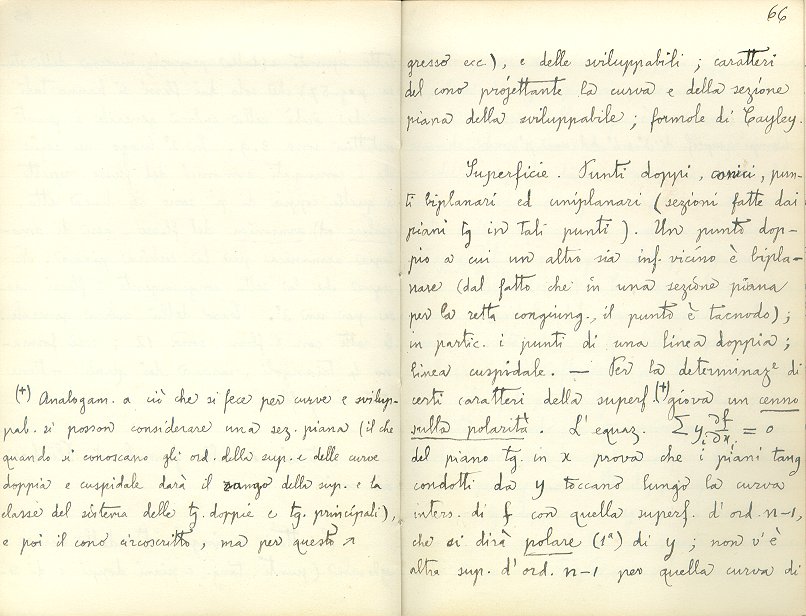 (+) Analogam. a ciò che si fece per curve e svilup-
pab. si posson considerare una sez. piana (il che
quando si conoscano gli ord. della sup. e delle curve
doppia e cuspidale darà il rango della sup. e la
classe del sistema delle tg. doppie e tg. principali),
e poi il cono circoscritto, ma per questo
66
gresso ecc.), e delle sviluppabili; caratteri
del cono projettante la curva e della sezione
piana della sviluppabile; formole di Cayley.
Superficie. Punti doppi, conici, pun-
ti biplanari ed uniplanari (sezioni fatte dai
piani tg in tali punti). Un punto dop-
pio a cui un altro sia inf. vicino è bipla-
nare (dal fatto che in una sezione piana
per la retta congiung., il punto è tacnodo);
in partic. i punti di una linea doppia;
linea cuspidale. — Per la determinazᵉ di
certi caratteri della superf.(+) giova un cenno
sulla polarità. L'equaz. ∑ yᵢ ∂f/∂xᵢ = 0
del piano tg. in x prova che i piani tang
condotti da y toccano lungo la curva
inters. di f con quella superf. d'ord. n-1,
che si dirà polare (1ª) di y; non v'è
altra sup. d'ord. n-1 per quella curva di